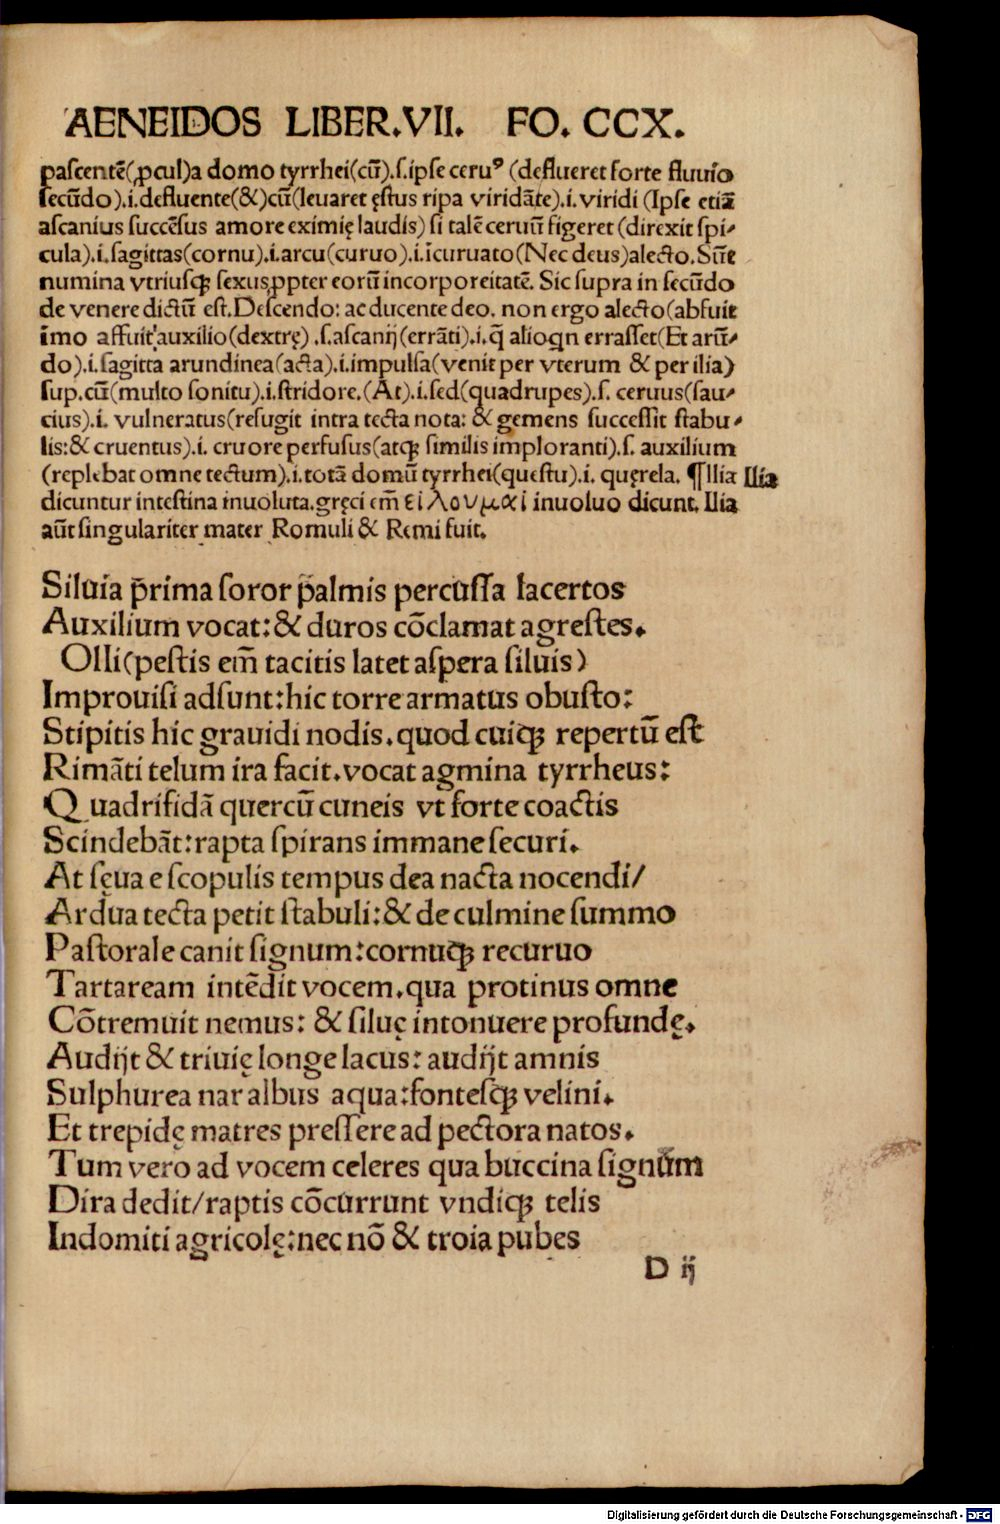 AENEIDOS LIBER.VII. FO. CCX.
pascentē(ꝓcul)a domo tyrrhei(cū).ſ.ipſe ceruꝰ (deflueret forte fluuio
ſecūdo).i.defluente(&)cū(leuaret ęſtus ripa viridāte).i. viridi (Ipſe etiā
aſcanius ſuccēſus amore eximię laudis) ſi talē ceruū figeret (direxit ſpi⸗
cula).i.ſagittas(cornu).i.arcu(curuo).i.īcuruato(Nec deus)alecto.Sūt
numina vtriuſqꝫ ſexus,ꝓpter eorū incorporeitatē. Sic ſupra in ſecūdo
de venere dictū eſt.Deſcendo: ac ducente deo. non ergo alecto(abfuit
īmo affuit'auxilio(dextrę) .ſ.aſcanij(errāti).i.q̄ alioqn erraſſet(Et arū⸗
do).i.ſagitta arundinea(acta).i.impulſa(venit per vterum & per ilia)
ſup.cū(multo ſonitu).i.ſtridore.(At).i.ſed(quadrupes).ſ. ceruus(ſau⸗
cius).i. vulneratus(refugit intra tecta nota: & gemens ſucceſſit ſtabu⸗
lis:& cruentus).i. cruore perfuſus(atqꝫ ſimilis imploranti).ſ. auxilium
(replebat omne tectum).i.totā domū tyrrhei(queſtu).i. quęrela. ¶Ilia Ilia
dicuntur inteſtina inuoluta.gręci em̄ ειλουμαι inuoluo dicunt. Ilia
aūt ſingulariter mater Romuli & Remi fuit.
Siluia p̄rima ſoror p̄almis percuſſa lacertos
Auxilium vocat:& duros cōclamat agreſtes.
Olli(peſtis em̄ tacitis latet aſpera ſiluis)
Improuiſi adſunt:hic torre armatus obuſto:
Stipitis hic grauidi nodis.quod cuiqꝫ repertū eſt
Rimāti telum ira facit.vocat agmina tyrrheus:
Quadrifidā quercū cuneis vt forte coactis
Scindebāt:rapta ſpirans immane ſecuri.
At ſęua e ſcopulis tempus dea nacta nocendi/
Ardua tecta petit ſtabuli:& de culmine ſummo
Paſtorale canit ſignum:cornuqꝫ recuruo
Tartaream intēdit vocem.qua protinus omne
Cōtremuit nemus: & ſiluę intonuere profundę.
Audijt & triuię longe lacus: audijt amnis
Sulphurea nar albus aqua:fonteſqꝫ velini.
Et trepidę matres preſſere ad pectora natos.
Tum vero ad vocem celeres qua buccina ſignūm
Dira dedit/raptis cōcurrunt vndiqꝫ telis
Indomiti agricolę:nec nō & troia pubes
D ij
Digitalisierung gefördert durch die Deutsche Forschungsgemeinschaft - DFG